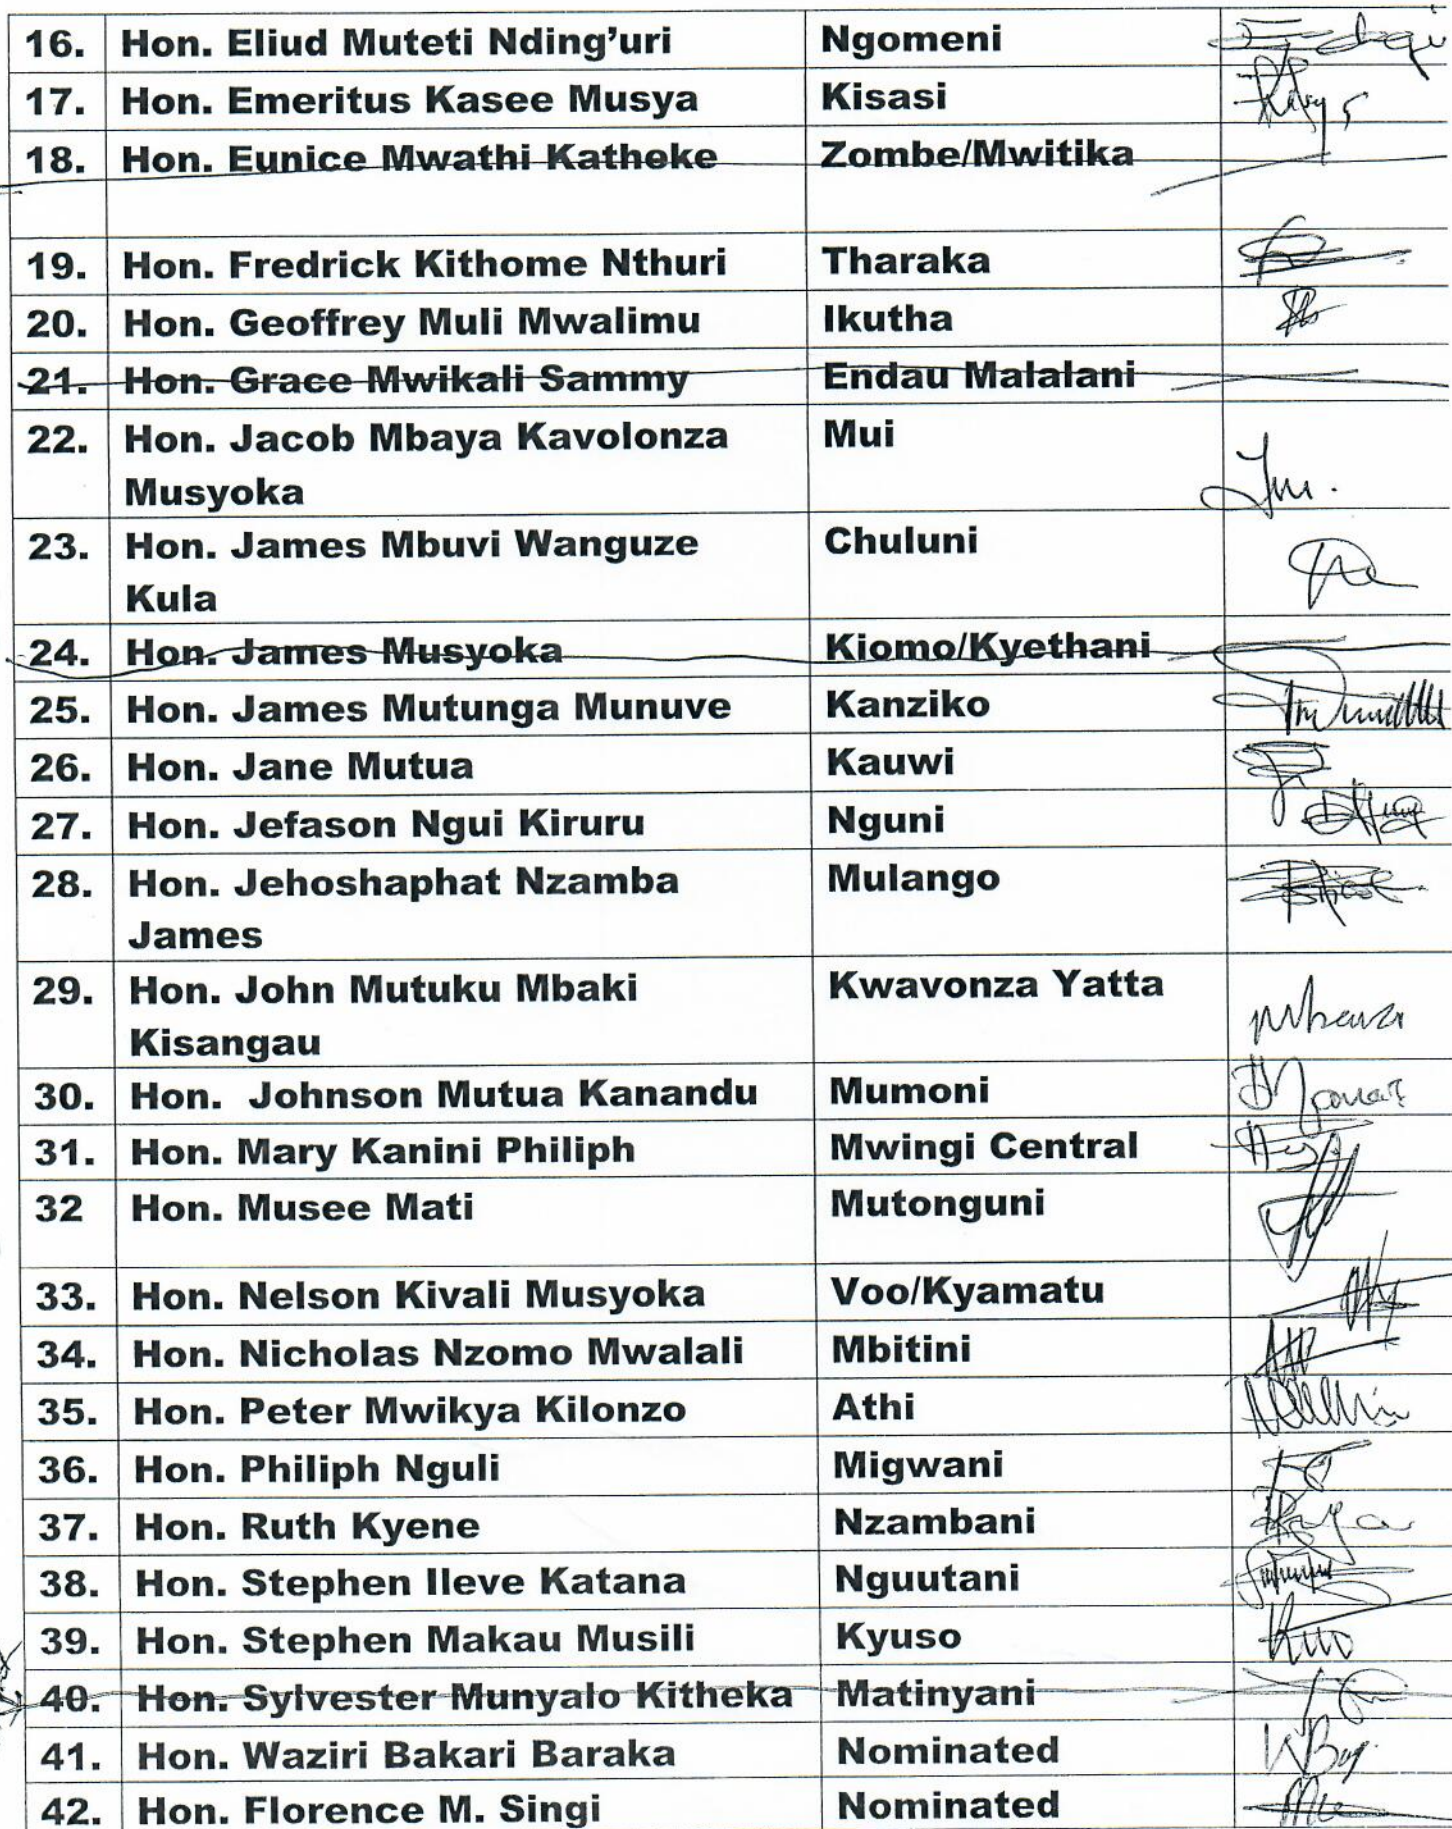 16. Hon. Eliud Muteti Nding'uri Ngomeni
17. Hon. Emeritus Kasee Musya Kisasi
18. Hon. Eunice Mwathi Katheke Zombe/Mwitika
19. Hon. Fredrick Kithome Nthuri Tharaka
20. Hon. Geoffrey Muli Mwalimu Ikutha
21. Hon. Grace Mwikali Sammy Endau Malalani
22. Hon. Jacob Mbaya Kavolonza Mui
Musyoka
23. Hon. James Mbuvi Wanguze Chuluni
Kula
24. Hon. James Musyoka Kiomo/Kyethani
25. Hon. James Mutunga Munuve Kanziko
26. Hon. Jane Mutua Kauwi
27. Hon. Jefason Ngui Kiruru Nguni
28. Hon. Jehoshaphat Nzamba Mulango
James
29. Hon. John Mutuku Mbaki Kwavonza Yatta
Kisangau
30. Hon. Johnson Mutua Kanandu Mumoni
31. Hon. Mary Kanini Philiph Mwingi Central
32 Hon. Musee Mati Mutonguni
33. Hon. Nelson Kivali Musyoka Voo/Kyamatu
34. Hon. Nicholas Nzomo Mwalali Mbitini
35. Hon. Peter Mwikya Kilonzo Athi
36. Hon. Philiph Nguli Migwani
37. Hon. Ruth Kyene Nzambani
38. Hon. Stephen Ileve Katana Nguutani
39. Hon. Stephen Makau Musili Kyuso
40. Hon. Sylvester Munyalo Kitheka Matinyani
41. Hon. Waziri Bakari Baraka Nominated
42. Hon. Florence M. Singi Nominated